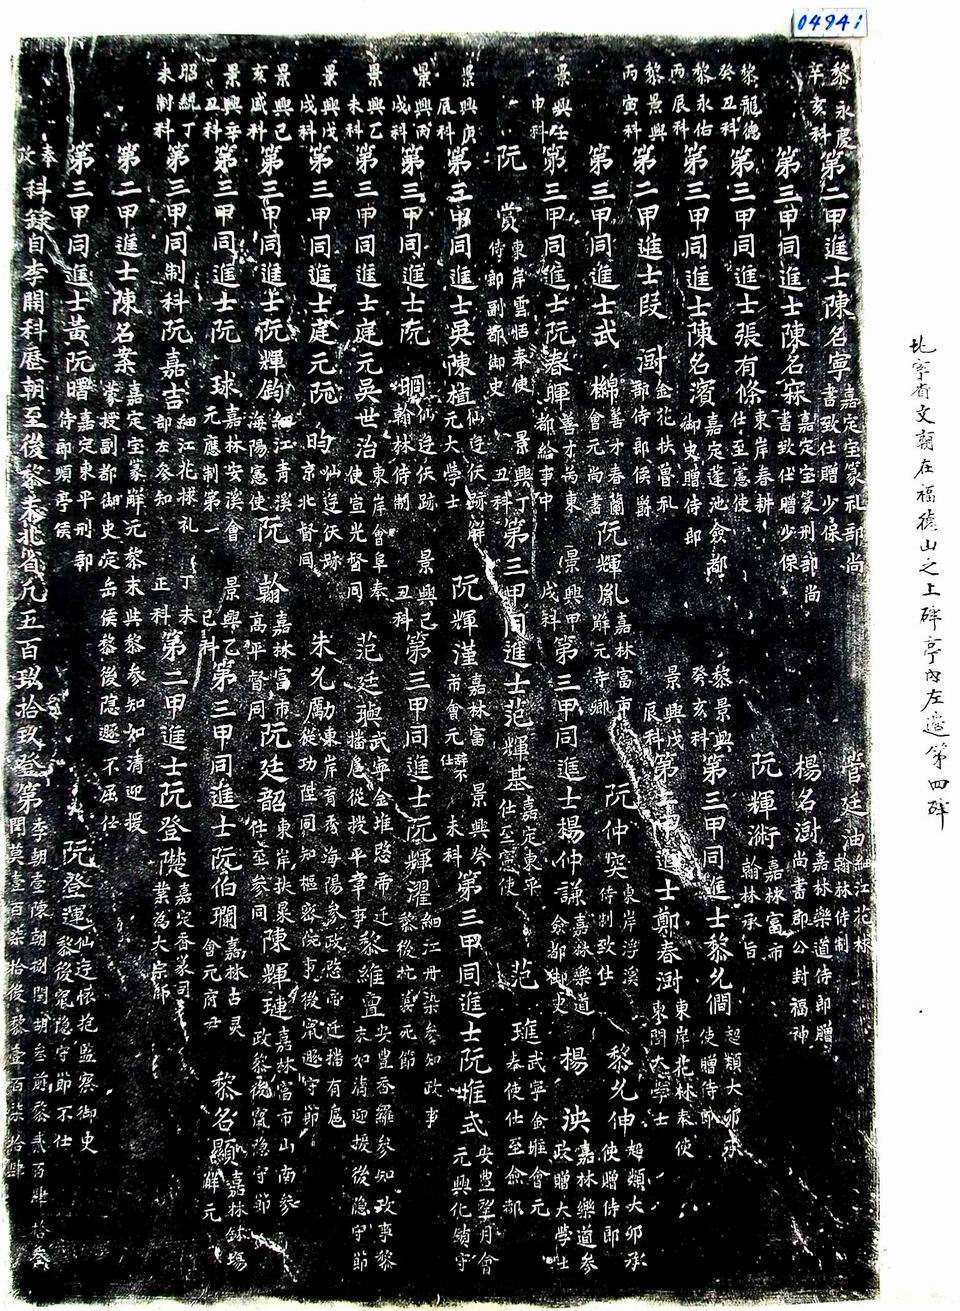 04941
北寧省文廟在福德山之上碑亭內左邊第四碑
黎永慶辛亥科 第二甲進士陳名寧 嘉定宝篆礼部尚書致仕贈少保 管廷油 細江花林翰林侍制
第三甲同進士陳名寀 嘉定宝篆刑部尚書致仕贈少保 楊名澍 嘉林樂道侍郎贈尚書郡公封福神
黎龍德癸丑科 第三甲同進士張有條 東岸春耕仕至憲使 阮輝術 嘉林富市翰林承旨
黎永佑丙辰科 第三甲同進士陳名濱 嘉定蓬池僉都御史贈侍郎 黎景興癸亥科 第三甲同進士黎允僩 超類大卯承使贈侍郎
黎景興丙寅科 第二甲進士段澍 金花扶魯礼部侍郎侯爵 景興戊辰科 第三甲進士鄭春澍 東岸花林奉使東閣大學士
第三甲同進士武棉 善才春蘭會元尚書 阮輝胤 嘉林富市解元寺卿 阮仲突 東岸浮溪侍制致仕 黎允伸 超類大卯承使贈侍郎
景興壬申科 第三甲同進士阮春暉 善才為東都給事中 景興甲戌科 第三甲同進士楊仲謙 嘉林樂道僉都御史 楊泱 嘉林樂道參政贈大學士
阮賞 東岸雲恬奉使侍郎副都御史 景興丁丑科 第三甲同進士范輝基 嘉定東平仕至憲使 范璀 武寧金堆會元奉使仕至僉都
景興庚辰科 第三甲同進士吳陳植 仙逰伏跡解元大學士 阮輝瑾 嘉林富市會元仕辞 景興癸未科 第三甲同進士阮堆式 安豊翠月會元興化鎮守
景興丙戌科 第三甲同進士阮啁 仙逰伏跡翰林侍制 景興己丑科 第三甲同進士阮輝濯 細江丹染參知政事黎後抗義死節
景興乙未科 第三甲同進士庭元吳世治 東岸會阜奉使宣光督同 范廷璵 武寧金堆愍帝迁播扈從授平章事 黎維亶 安豊香羅參知政事黎末如清迎援後隱守節
景興戊戌科 第三甲同進士庭元阮昀 仙逰伏跡京北督同 朱允勵 東岸育秀海陽參政愍帝迁播有扈從功陞同知樞密院事後竄遯守節
景興己亥盛科 第三甲同進士阮輝鈞 細江青溪海陽憲使 阮翰 嘉林富市高平督同 阮廷韶 東岸扶杲仕至參同 陳輝璉 嘉林富市山南參政黎後竄隐守節
景興辛丑科 第三甲同進士阮球 嘉林安溪會元應制第一 景興乙巳科 第三甲同進士阮伯瓓 嘉林古灵會元府尹 黎名顯 嘉林缽塲解元
昭統丁未制科 第三甲同制科阮嘉吉 細江花梂礼部左參知 丁未正科 第二甲進士阮登㩁 嘉定香篆司業為大宗師
第二甲進士陳名案 嘉定宝篆解元黎末共黎參知如清迎援蒙授副都御史定岳侯黎後隱遯不屈仕
第三甲同進士黃阮曙 嘉定東平刑部侍郎順亭侯 阮登運 仙逰懷抱監察御史黎後竄隐守節不仕
奉吏科錄自李開科歷朝至後黎末北省凡五百玖拾玖登第 李朝壹陳朝捌閏胡叁前黎貳百肆拾叁閏莫壹百柒拾後黎壹百柒拾肆